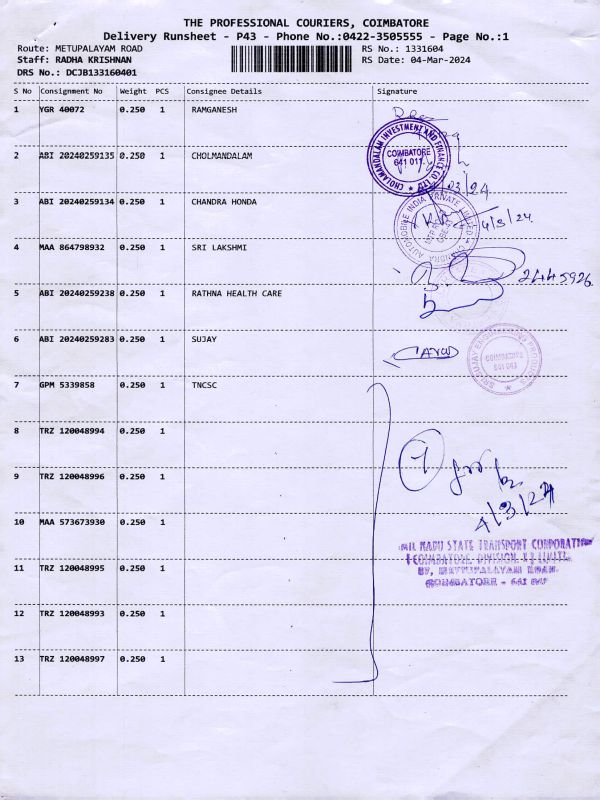 THE PROFESSIONAL COURIERS, COIMBATORE
Delivery Runsheet - P43 - Phone No.:0422-3505555 - Page No.:1
Route: METUPALAYAM ROAD
RS No.: 1331604
Staff: RADHA KRISHNAN
RS Date: 04-Mar-2024
DRS No.: DCJB133160401
S No Consignment No Weight PCS Consignee Details Signature
1 YGR 40072 0.250 1 RAMGANESH
CHOLAMANDALAM INVESTMENT AND FINANCE CO. LTD.
COIMBATORE
641 011.
2 ABI 20240259135 0.250 1 CHOLMANDALAM
03/24
3 ABI 20240259134 0.250 1 CHANDRA HONDA
CHANDRA AUTOMOBILE INDIA PRIVATE LIMITED
4/3/24.
4 MAA 864798932 0.250 1 SRI LAKSHMI
2445926
5 ABI 20240259238 0.250 1 RATHNA HEALTH CARE
6 ABI 20240259283 0.250 1 SUJAY
COIMBATORE
7 GPM 5339858 0.250 1 TNCSC
8 TRZ 120048994 0.250 1
7
9 TRZ 120048996 0.250 1
4/3/24
10 MAA 573673930 0.250 1
MIL NADU STATE TRANSPORT CORPORATION
COIMBATORE DIVISION
11 TRZ 120048995 0.250 1
METTUPALAYAM ROAD.
COIMBATORE - 641
12 TRZ 120048993 0.250 1
13 TRZ 120048997 0.250 1